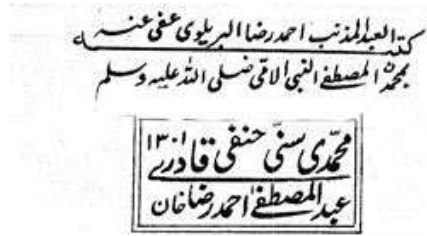 کتبـــــہ العبد المذنب احمد رضا البریلوی عفی عنہ
بمحمدن المصطفے النبی الامی صلی اللہ علیہ وسلم
محمدی سنی حنفی قادری ۱۳۰۱
عبد المصطفےٰ احمد رضا خان